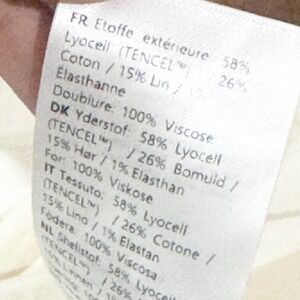 FR Etoffe extérieure 58%
Lyocell (TENCEL™) / 26%
Coton / 15% Lin / 1%
Elasthanne
Doublure: 100% Viscose
DK Yderstof: 58% Lyocell
(TENCEL™) / 26% Bomuld /
15% Hør / 1% Elasthan
For: 100% Viskose
IT Tessuto: 58% Lyocell
(TENCEL™) / 26% Cotone /
15% Lino / 1% Elastan
Fodera: 100% Viscosa
NL Shellstof: 58% Lyocell
(TENCEL™) / 26%
Linnen / 1%
100%